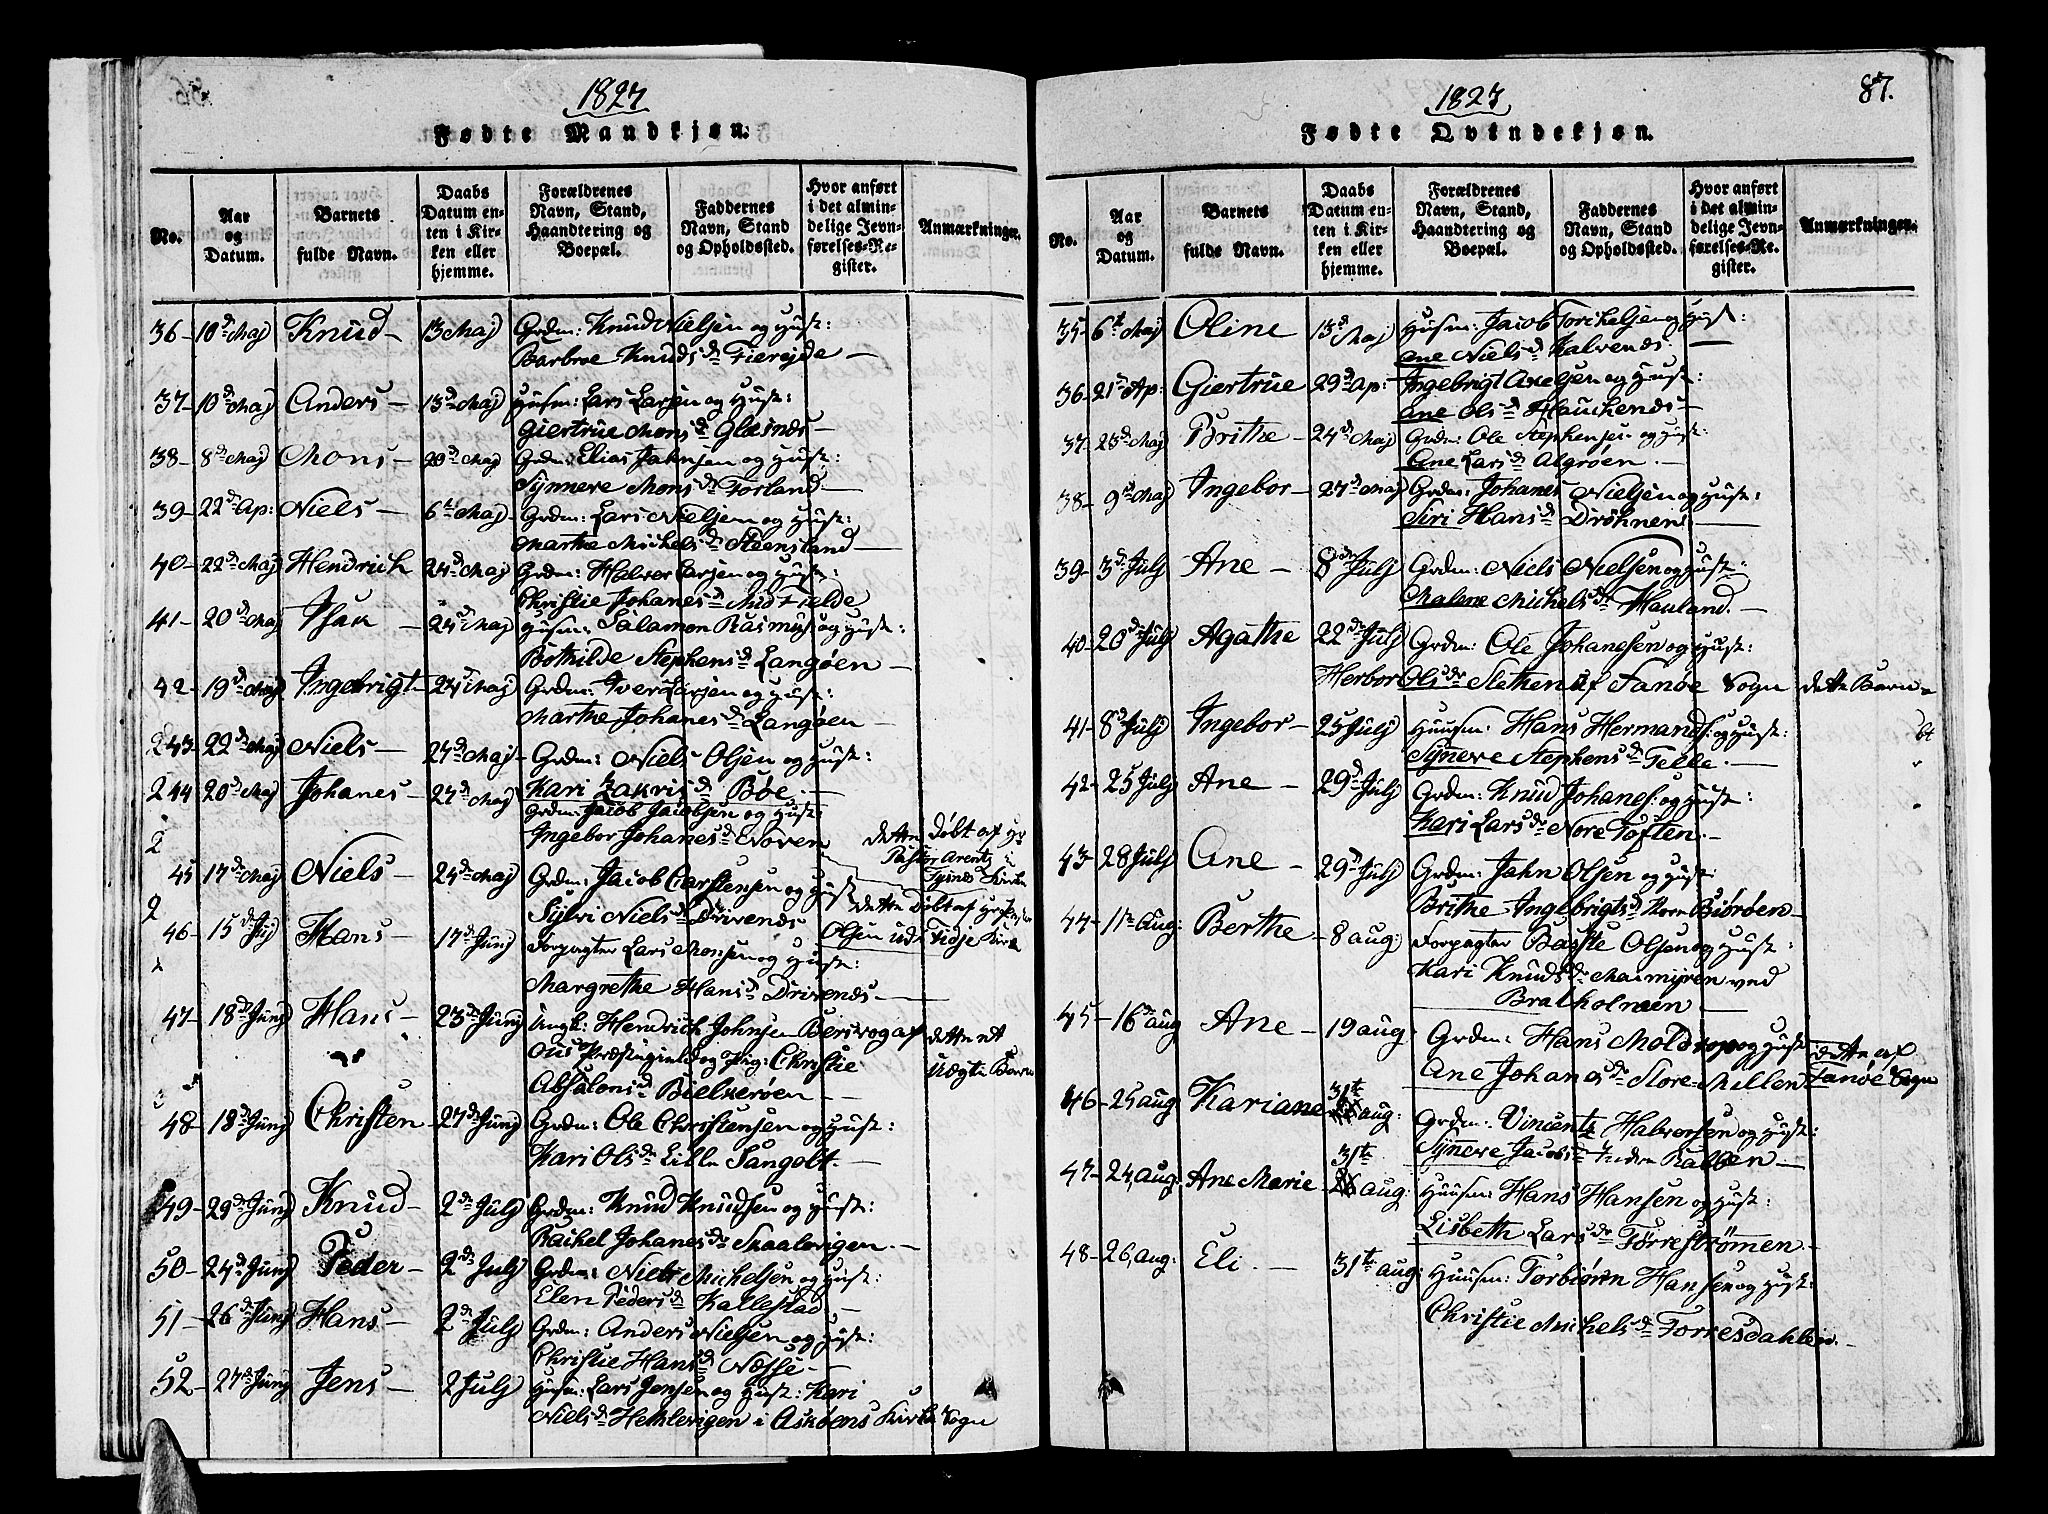 1827
Fødte Mandkjøn.
No.
Aar og Datum.
Barnets fulde Navn.
Daabs Datum enten i Kirken eller hjemme.
Forældrenes Navn, Stand, Haandtering og Boepæl.
Faddernes Navn, Stand og Opholdssted.
Hvor anført i det almindelige Jevnførelses-Register.
Anmærkninger.
36 - 10d Maj Knud - 13 Maj Grdm: Knud Nielsen og Hust:
Barbroe Knudsd Tiereide -
37 - 10d Maj Anders - 13d Maj Husm: Lars Larsen og Hust:
Giertrue Monsd Glesnæs -
38 - 8d Maj Mons - 20d Maj Grdm: Elias Jahnsen og Hust:
Synneve Monsd Torland -
39 - 22d Ap: Niels - 6t Maj Grdm: Lars Nielsen og Hust:
Marthe Michelsd Steensland -
40 - 22d Maj Hendrich 24d Maj Grdm: Halvor Larsen og Hust:
Christie Johanesd Midtfielde
41 - 20d Maj - 24d Maj Husm: Salamon Rasmus og Hust:
Bothilde Stephensd Langøen -
42 - 19d Maj Ingebrigt - 24d Maj Grdm: Iver Larsen og Hust:
Marthe Johanesd Langøen -
43 - 22d Maj Niels - 27d Maj - Grdm: Niels Olsen og Hust:
Kari Zakrisd Bøe. -
44 20d Maj Johanes - 27d Maj Grdm: Jacob Jacobsen og Hust:
Ingebor Johanesd
45 17d Maj Niels - 24d Maj Grdm: Jacob Carstensen og Hust
Sylvi Nielsd Drivenes
dette døbt af Hr Pastor Arentz i Tysnes Kirke
46 - 15d Juj Hans - 17d Junj Forpagter Lars Monsen og Hust:
Margrethe Hansd Drivenes -
dette døbt af Olsen udi Kirk
47 - 18d Junj Hans - 23d Junj Ungk: Hendrich Johnsen af
Ous Præstegield og Pig: Christie
Absalonsd Bielkerøen - -
dette et uægte Barn
48 - 18d Junj Christen - 27d Junj Grdm: Ole Christensen og Hust:
Kari Olsd Lille Sangolt. -
49 - 29d Junj Knud - 2d Julj Grdm: Knud Knudsen og Hust:
Rachel Johanesd Skaalevigen. -
50 - 24d Junj Peder - 2d Julj Grdm: Niels Michelsen og Hust:
Elen Pedersd Kallestad -
51 - 26d Junj Hans - 2d Julj Grdm: Anders Nielsen og Hust:
Christie Hansd Næsse -
52 - 27d Junj Jens - 2 Julj Husm: Lars Jensen og Hust: Kari
Nielsd Hetlevigen i Askøens Kirke Sogn
1827
87.
Fødte Qvindekjøn.
No.
Aar og Datum.
Barnets fulde Navn.
Daabs Datum enten i Kirken eller hjemme.
Forældrenes Navn, Stand, Haandtering og Boepæl.
Faddernes Navn, Stand og Opholdssted.
Hvor anført i det almindelige Jevnførelses-Register.
Anmærkninger.
35 - 6t Maj Oline 13d Maj Husm: Jacob Torchelsen og Hust:
Ane Nielsd Kalvenes. -
36 - 21d Ap: Giertrue 29d Ap: Ingebrigt Axelsen og Hust:
Ane Olsd Hauchenæs -
37 - 23d Maj Brithe - 24d Maj Grdm: Ole Stephensen og Hust:
Ane Larsd Algrøen. -
38 - 9d Maj Ingebor - 27d Maj Grdm: Johanes Nielsen og Hust:
Siri Hansd Drøhnen -
39 - 3d Julj Ane - 8de Julj Grdm: Niels Nielsen og Hust:
Malene Michelsdr Hauland. -
40 - 20de Julj Agathe 22de Julj Grdm: Ole Johanesen og Hust:
Herbor Olsdr Sletten af Fanøe Sogn dette Barn
41 - 8d Julj Ingebor - 25 Julj Huusm: Hans Hermands: og Hust:
Synneve Stephensd Telle. -
42 - 25 Julj Ane - 29d Julj Grdm: Knud Johanes: og Hust:
Kari Larsdr Nore Toften. -
43 - 28 Julj Ane - 29d Julj Grdm: Jahn Olsen og Hust:
Brithe Ingebrigtsd Biørøen -
44 - 11te Aug: Berthe - 8 aug: Forpagter Baste Olsen og Hust:
Kari Knudsdr Marmyren ved
Bratholmen -
45 - 16 aug Ane - 19 aug: Grdm: Hans og Hust
Ane Johanesdr Store Millen
dette af Fanøe Sogn
46 - 25 aug Kariane 31te aug: Grdm: Vincentz Halvorsen og Hust:
Synneve Jacobsd Indre Kalven -
47 - 24, aug: Ane Marie 31te aug: Huusm: Hans Hansen og Hust:
Lisbeth Larsdr Torrestrømen -
48 - 26, aug: Eli. - 31te aug: Huusm: Torbiørn Hansen og Hust:
Christie Michelsd Torresdahlen. -